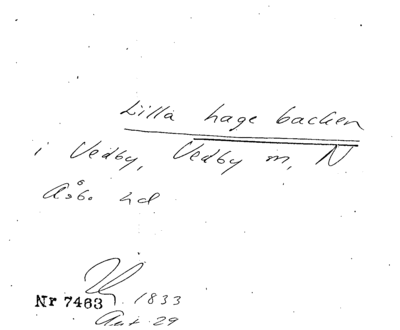 Lilla hage backen
i Vedby, Vedby m, N
Åsbo hd
Nr 7463 1833
29